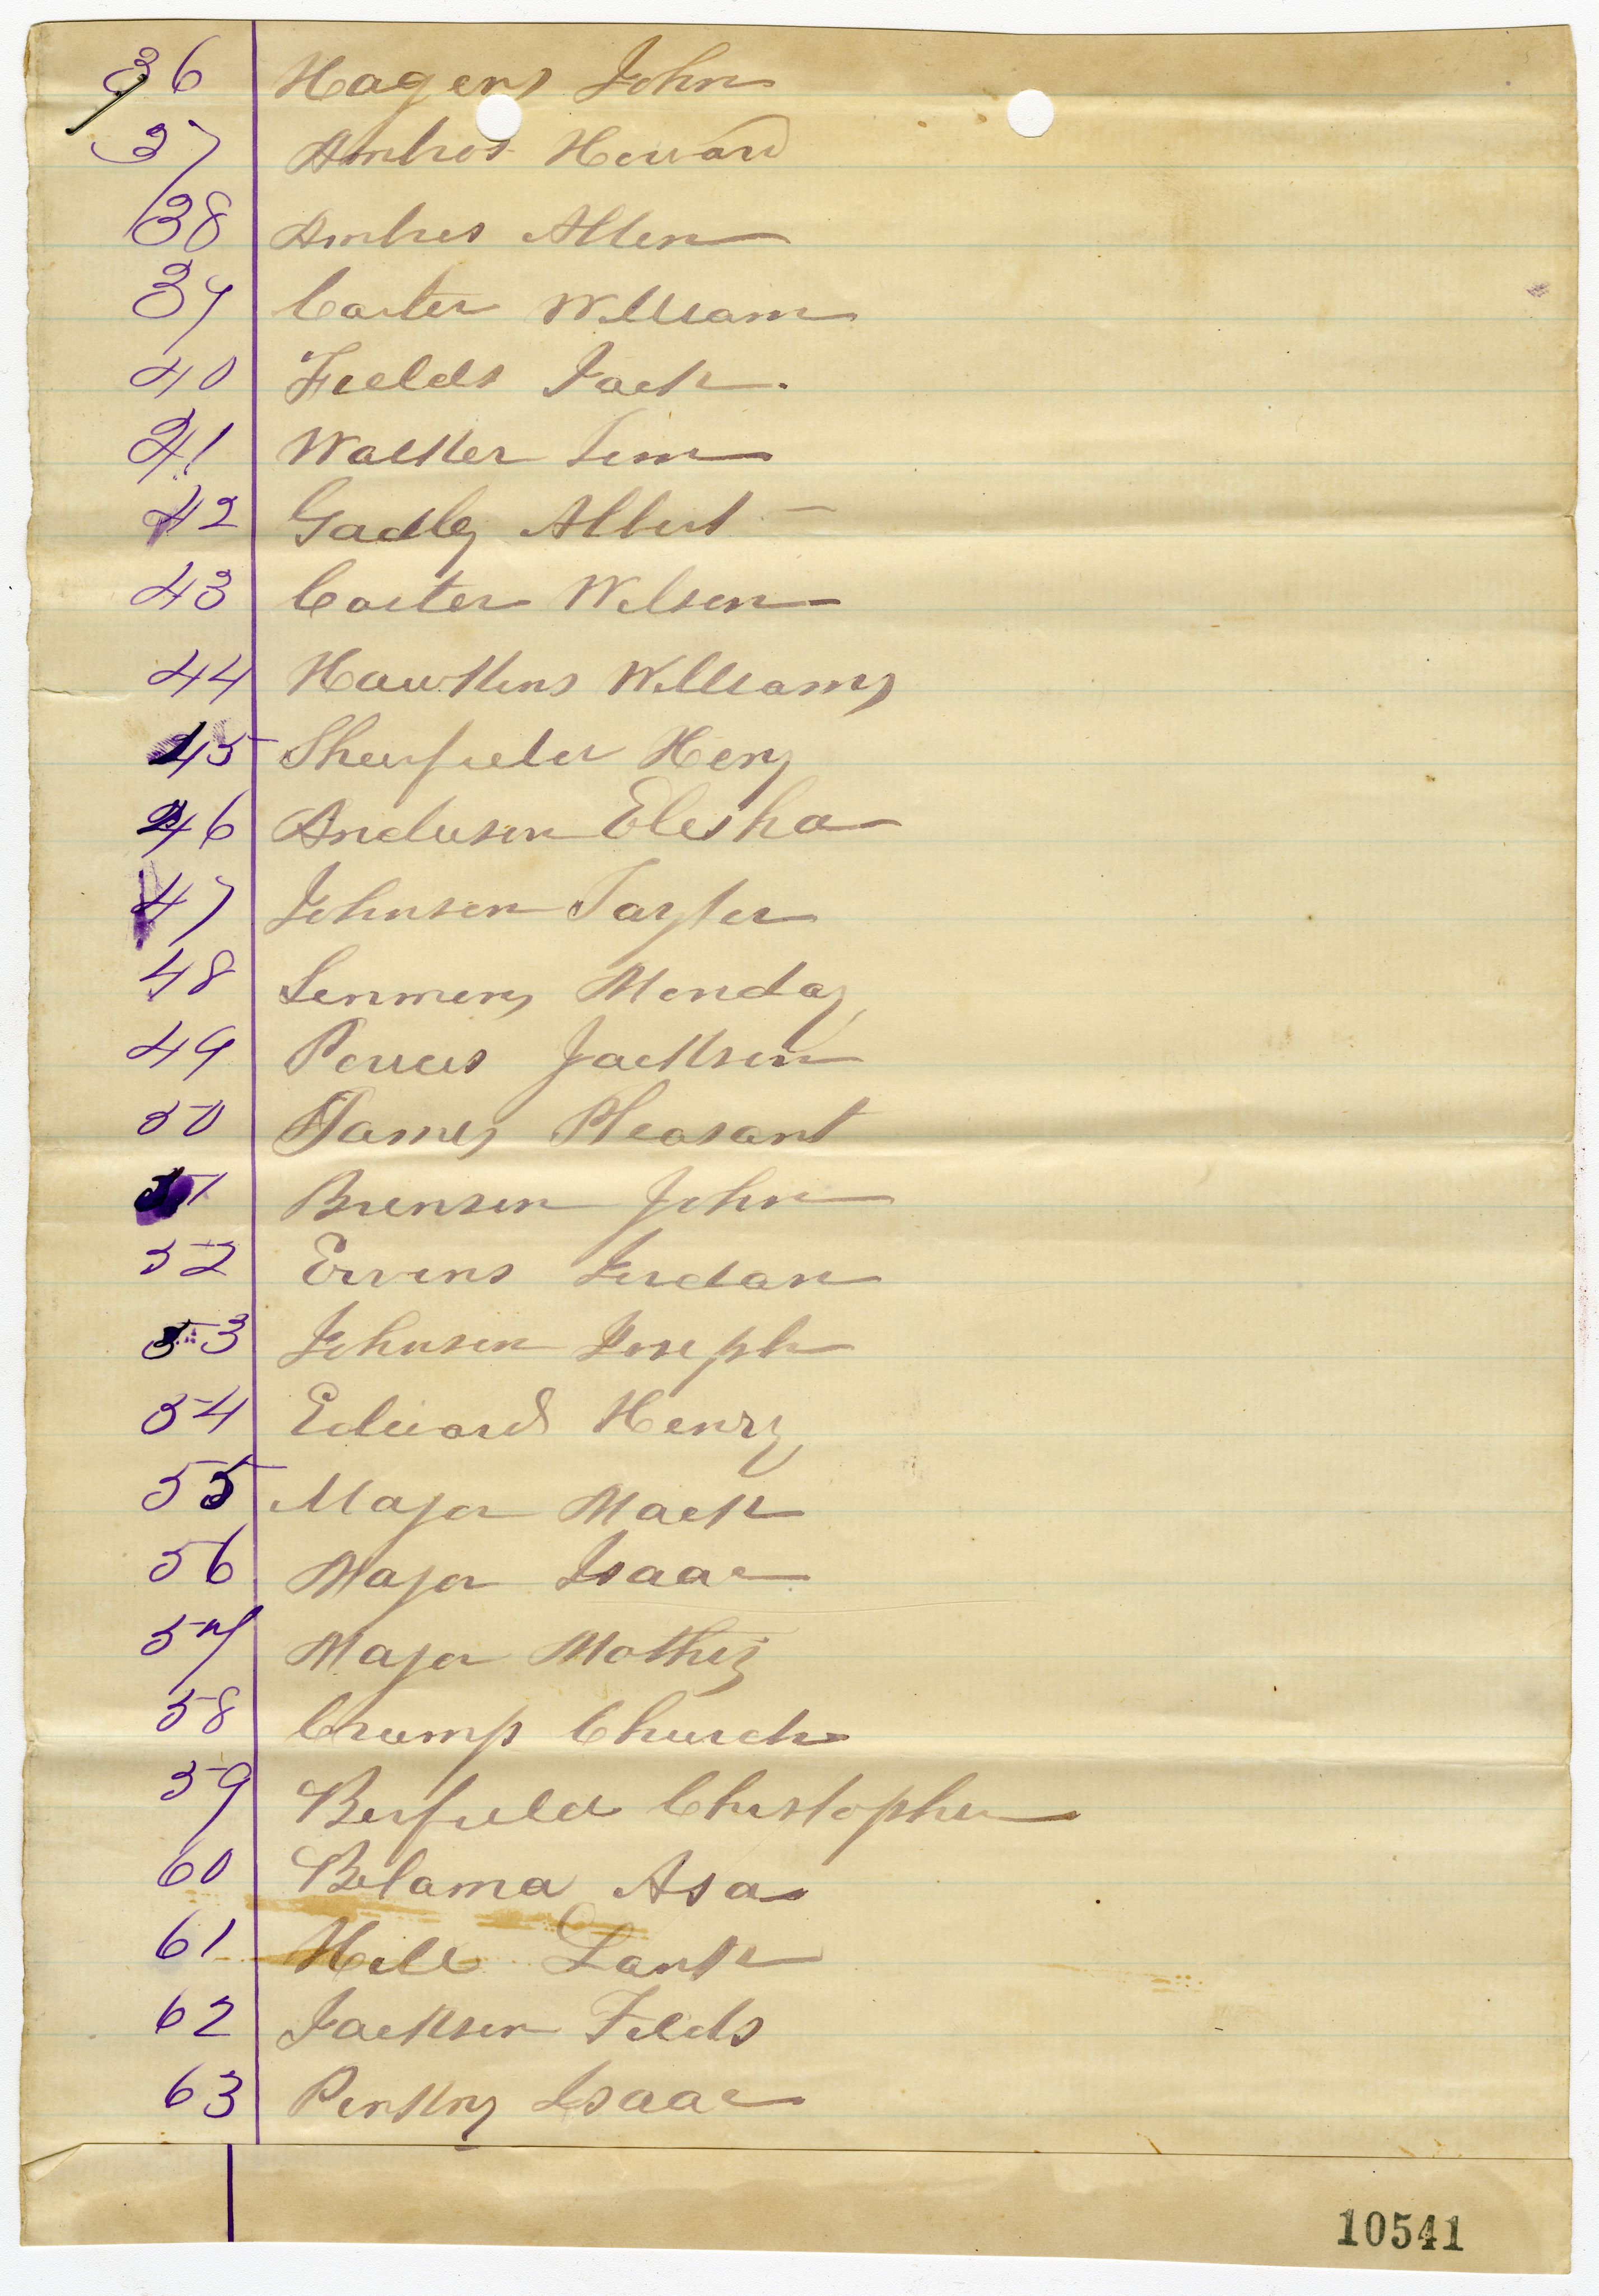 36 Hagens John
37 Ambros Howard
38 Ambres Allen
39 Carter William
40 Fields Jack.
41 Walker Jim
42 Gadley Albert
43 Carter Wilson
44 Hawkins Williams
45 Sherfield Hery
46 Anderson Elisha
47 Johnson Taylor
48 Monday
49 Jackson
50 James Pleasant
51 Brenson John
52 Ervins Jordan
53 Johnson Joseph
54 Edward Henry
55 Major Mack
56 Major Isaac
57 Major
58 Crump Church
59 Berfield Christopher
60 Belama Asa
61 Hill Lank
62 Jackson Filds
63 Isaac
10541